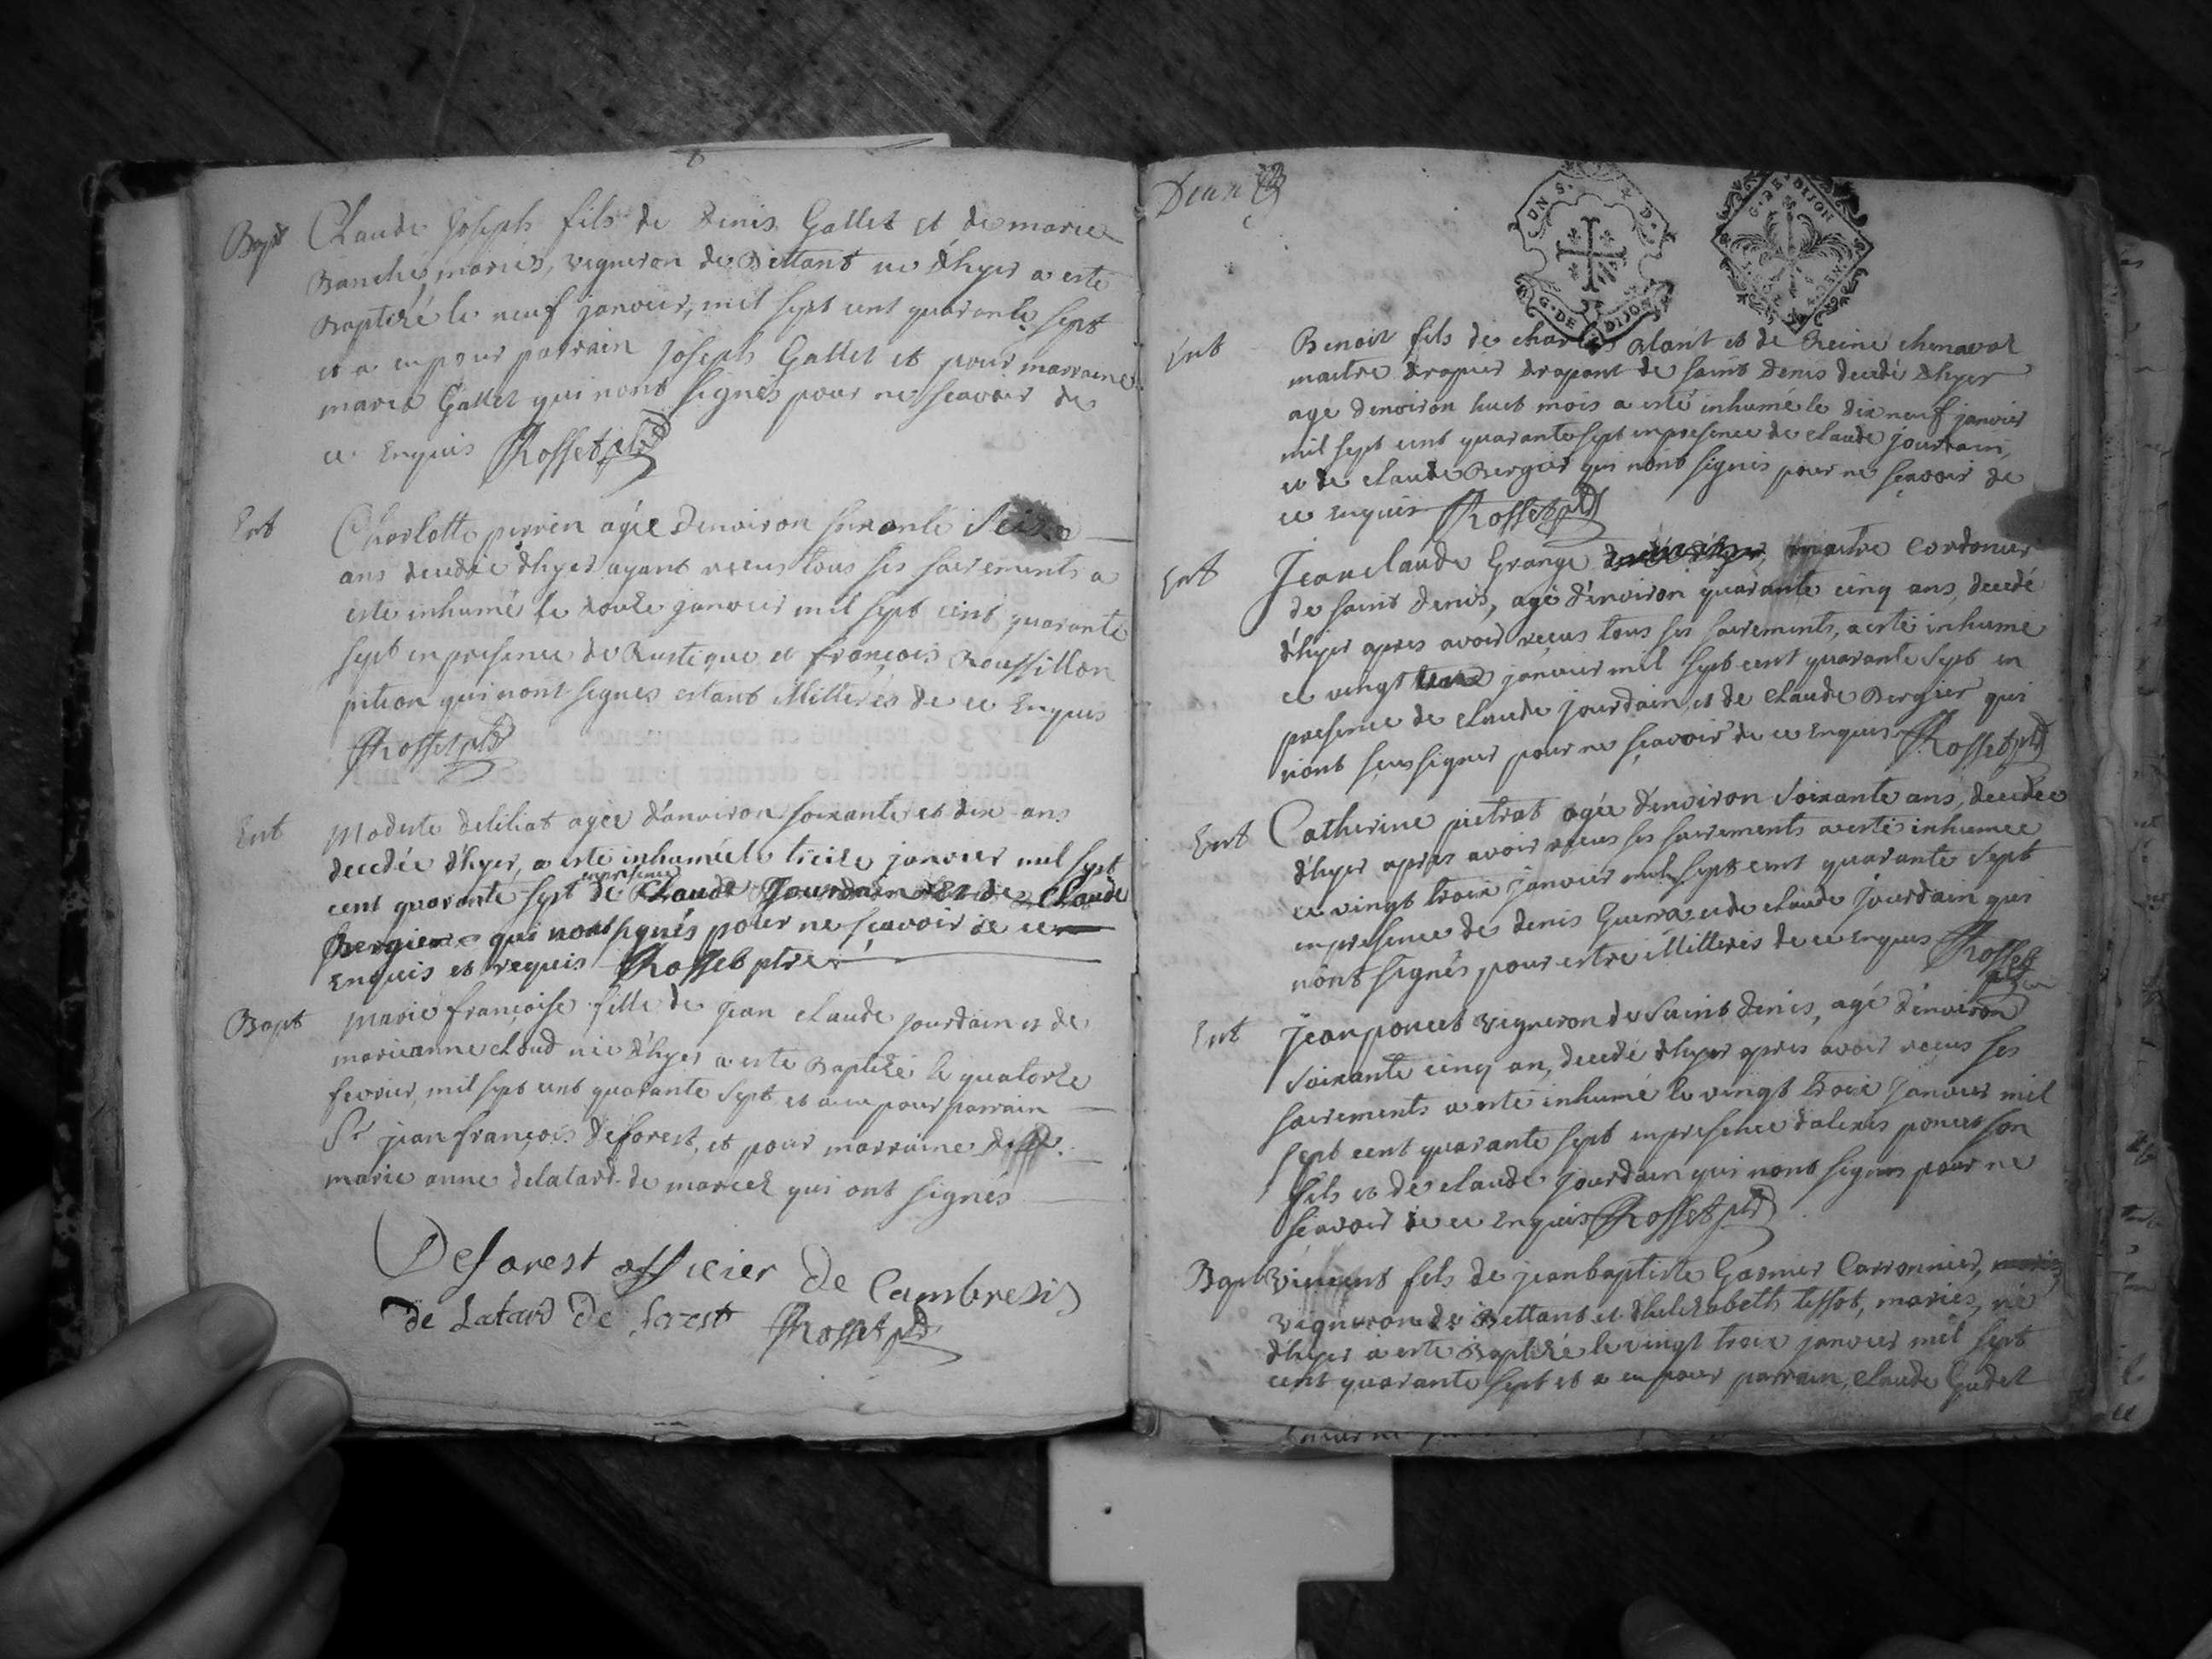 Bapt
Claude Joseph fils de Denis Gallet et de marie
Banche, mariés, vigneron de Bettant né d'hyer a esté
Baptizé le neuf janvier, mil sept cent quarante sept
et a eu pour parrain Joseph Gallet et pour marraine
marie Gallet qui n'ont signés pour ne scavoir de
ce Enquis Rosset ptre
Ent
Charlotte perrin agée d'environ soixante seize
ans decedée d'hyer ayant receus tous ses sacrements a
esté inhumé le douze janvier mil sept cent quarante
sept en presence de Rustique et françois Roussillon
pition qui n'ont signes estant illitterés de ce Enquis
Rosset ptre
Ent
Modeste deliliat agée d'anviron soixante et dix ans
decedée d'hyer, a esté inhumée le treize janvier mil sept
en presence
cent quarante sept de Claude Jourdain et de Claude
Bergier qui nont signés pour ne scavoir de ce
Enquis et requis Rosset ptre
Bapt
marie françoise fille de Jean claude jourdain et de
marieanne cloud née d'hyer a esté Baptizé le quatorze
fevrier, mil sept cent quarante sept et a eu pour parrain
Sr jean françois deforest, et pour marraine
marie anne delatard de marcel qui ont signés
Deforest officier de Cambresis
de Latard De forest Rosset ptre
Deux
UN S. N. D.
G. DE DIJON
G. DE DIJON
Ent
Benoit fils de charles Blant et de Reine chenaval
maitre drapier drapant de saint Denis decedé d'hyer
agé d'environ huit mois a esté inhumé le dix neuf janvier
mil sept cent quarante sept en presence de claude jourdain,
et de claude Bergier qui n'ont signés pour ne sçavoir de
ce enquis Rosset ptre
Ent
Jean claude Grange maitre cordonier
de saint Denis, agé d'environ quarante cinq ans, decedé
d'hyer apres avoir receus tous ses sacrements, a esté inhumé
ce vingt janvier mil sept cent quarante sept en
presence de claude jourdain, et de claude Bergier qui
n'ont sceu signer pour ne sçavoir de ce Enquis Rosset ptre
Ent
Catherine pietrat agée d'environ soixante ans, decedée
d'hyer apres avoir receus ses sacrements a esté inhumée
ce vingt trois janvier mil sept cent quarante sept
en presence de denis Guerra et de claude Jourdain qui
n'ont signés pour estre illitterés de ce enquis Rosset
ptre
Ent
Jean poncet vigneron de saint denis, agé d'environ
soixante cinq an, decedé d'hyer apres avoir receus ses
sacrements a esté inhumé le vingt trois janvier mil
sept cent quarante sept en presence d'alexis poncet son
fils et de claude Jourdain qui n'ont signes pour ne
scavoir de ce enquis Rosset ptre
Bapt
Vincent fils de jean baptiste Garnier Carronnier,
vigneron de Bettant et d'helizabeth tissot, mariés, né
d'hyer a esté Baptizé le vingt trois janvier mil sept
cent quarante sept et a eu pour parrain, claude Gudet